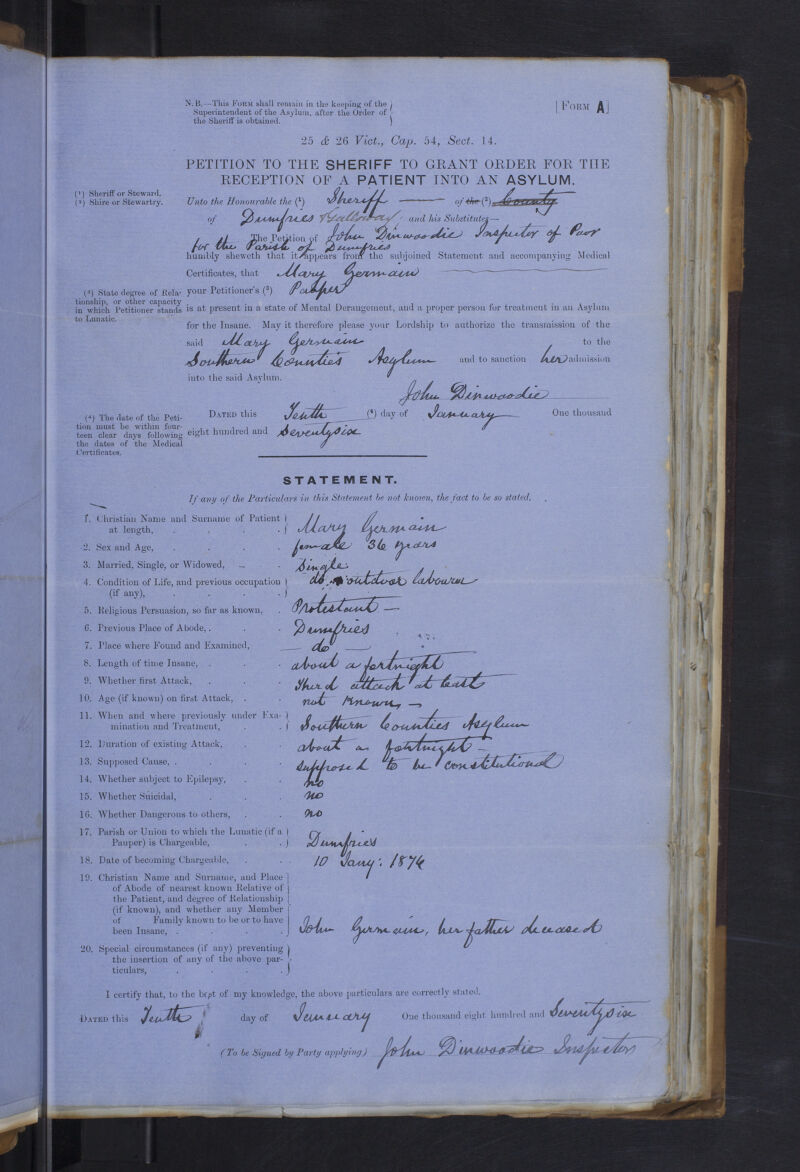 N.B.—This FORM shall remain in the keeping of the
Superintendent of the Asylum, after the Order of
the Sheriff is obtained.
[FORM A]
25 & 26 Vict., Cap. 54, Sect. 14.
PETITION TO THE SHERIFF TO GRANT ORDER FOR THE
RECEPTION OF A PATIENT INTO AN ASYLUM.
(¹) Sheriff or Steward.
(²) Shire or Stewartry.
Unto the Honourable the (¹) Sheriff — of the (²) County
of Dumfries & Galloway and his Substitutes—
The Petition of John Dinwoodie Inspector of Poor
for the Parish of Dumfries
humbly sheweth that it appears from the subjoined Statement and accompanying Medical
Certificates, that Mary Germain
(³) State degree of Relationship, or other capacity
in which Petitioner stands
to Lunatic.
your Petitioner's (³) Pauper
is at present in a state of Mental Derangement, and a proper person for treatment in an Asylum
for the Insane. May it therefore please your Lordship to authorize the transmission of the
said Mary Germain to the
Southern Counties Asylum and to sanction her admission
into the said Asylum.
John Dinwoodie
(⁴) The date of the Petition must be within fourteen clear days following
the dates of the Medical
Certificates.
DATED this Tenth (⁴) day of January One thousand
eight hundred and Seventysix
STATEMENT.
If any of the Particulars in this Statement be not known, the fact to be so stated.
1. Christian Name and Surname of Patient
at length, Mary Germain
2. Sex and Age, female 36 years
3. Married, Single, or Widowed, Single
4. Condition of Life, and previous occupation
(if any), do. outdoor labourer
5. Religious Persuasion, so far as known, Protestant —
6. Previous Place of Abode, Dumfries
7. Place where Found and Examined, — do —
8. Length of time Insane, about a fortnight
9. Whether first Attack, Third attack at least
10. Age (if known) on first Attack, not known —
11. When and where previously under Examination and Treatment, Southern Counties Asylum
12. Duration of existing Attack, about a fortnight —
13. Supposed Cause, supposed to be constitutional
14. Whether subject to Epilepsy, no
15. Whether Suicidal, no
16. Whether Dangerous to others, no
17. Parish or Union to which the Lunatic (if a
Pauper) is Chargeable, Dumfries
18. Date of becoming Chargeable, 10 Jany: 1876
19. Christian Name and Surname, and Place
of Abode of nearest known Relative of
the Patient, and degree of Relationship
(if known), and whether any Member
of Family known to be or to have
been Insane, John Germain, her father deceased
20. Special circumstances (if any) preventing
the insertion of any of the above particulars,
I certify that, to the best of my knowledge, the above particulars are correctly stated.
DATED this Tenth day of January One thousand eight hundred and Seventysix
(To be Signed by Party applying) John Dinwoodie Inspector